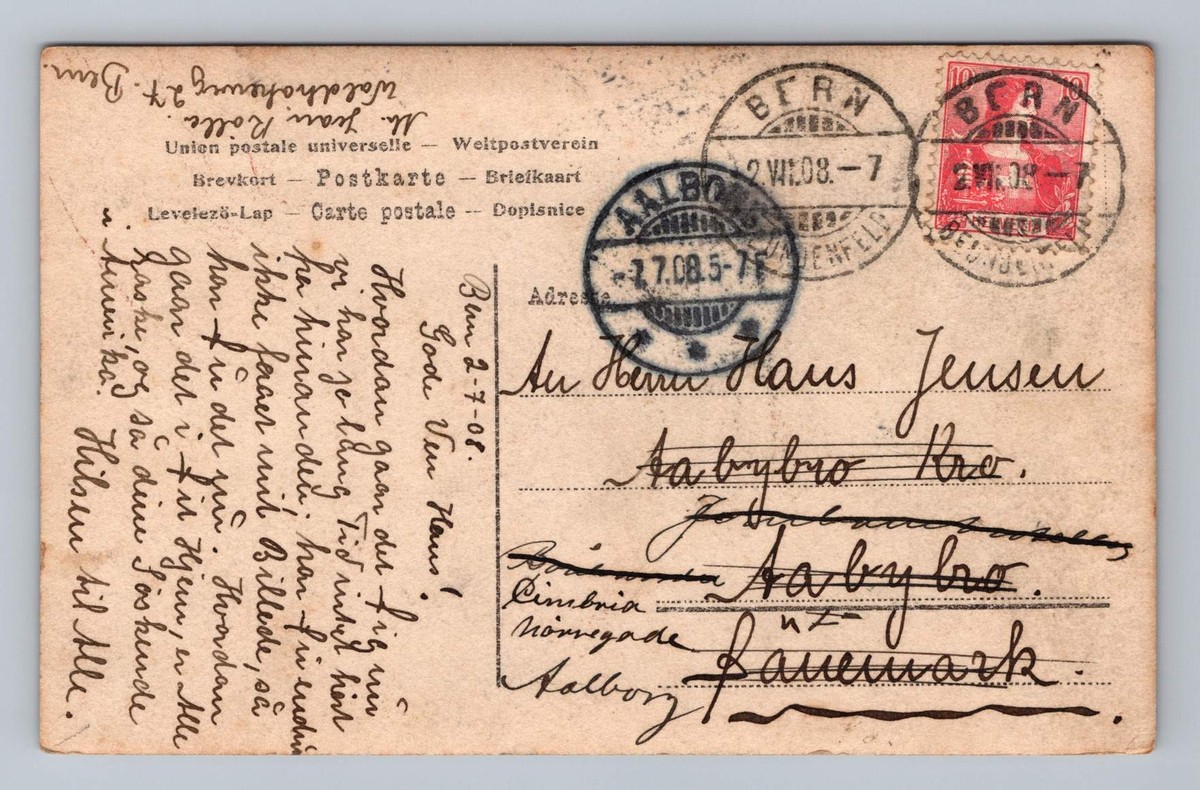 Mr. Jean Rölle.
Waldhöheweg 27.
Bern.
Union postale universelle — Weltpostverein
Brevkort — Postkarte — Briefkaart
Levelezö-Lap — Carte postale — Dopisnice
BERN
2.VII.08.–7
10 10
BERN
2.VII.08–7
AALBORG
7.08.5-7 F
Adresse
An Herrn Hans Jensen
Aabybro Kro.
Aabybro.
Cimbria
Nörregade
Aalborg
Danemark.
Bern 2-7-08.
Gode Ven Hans!
Hvordan gaar det Dig nu
vi har jo lang Tid intet hört
fra hinanden; har Du endnu
ikke faaet mit Billede, så
har Du det nu. Hvordan
gaar det i Dit Hjem, er Alle
raske, og så dine Söskende
i Amerika.
Hilsen til Alle.